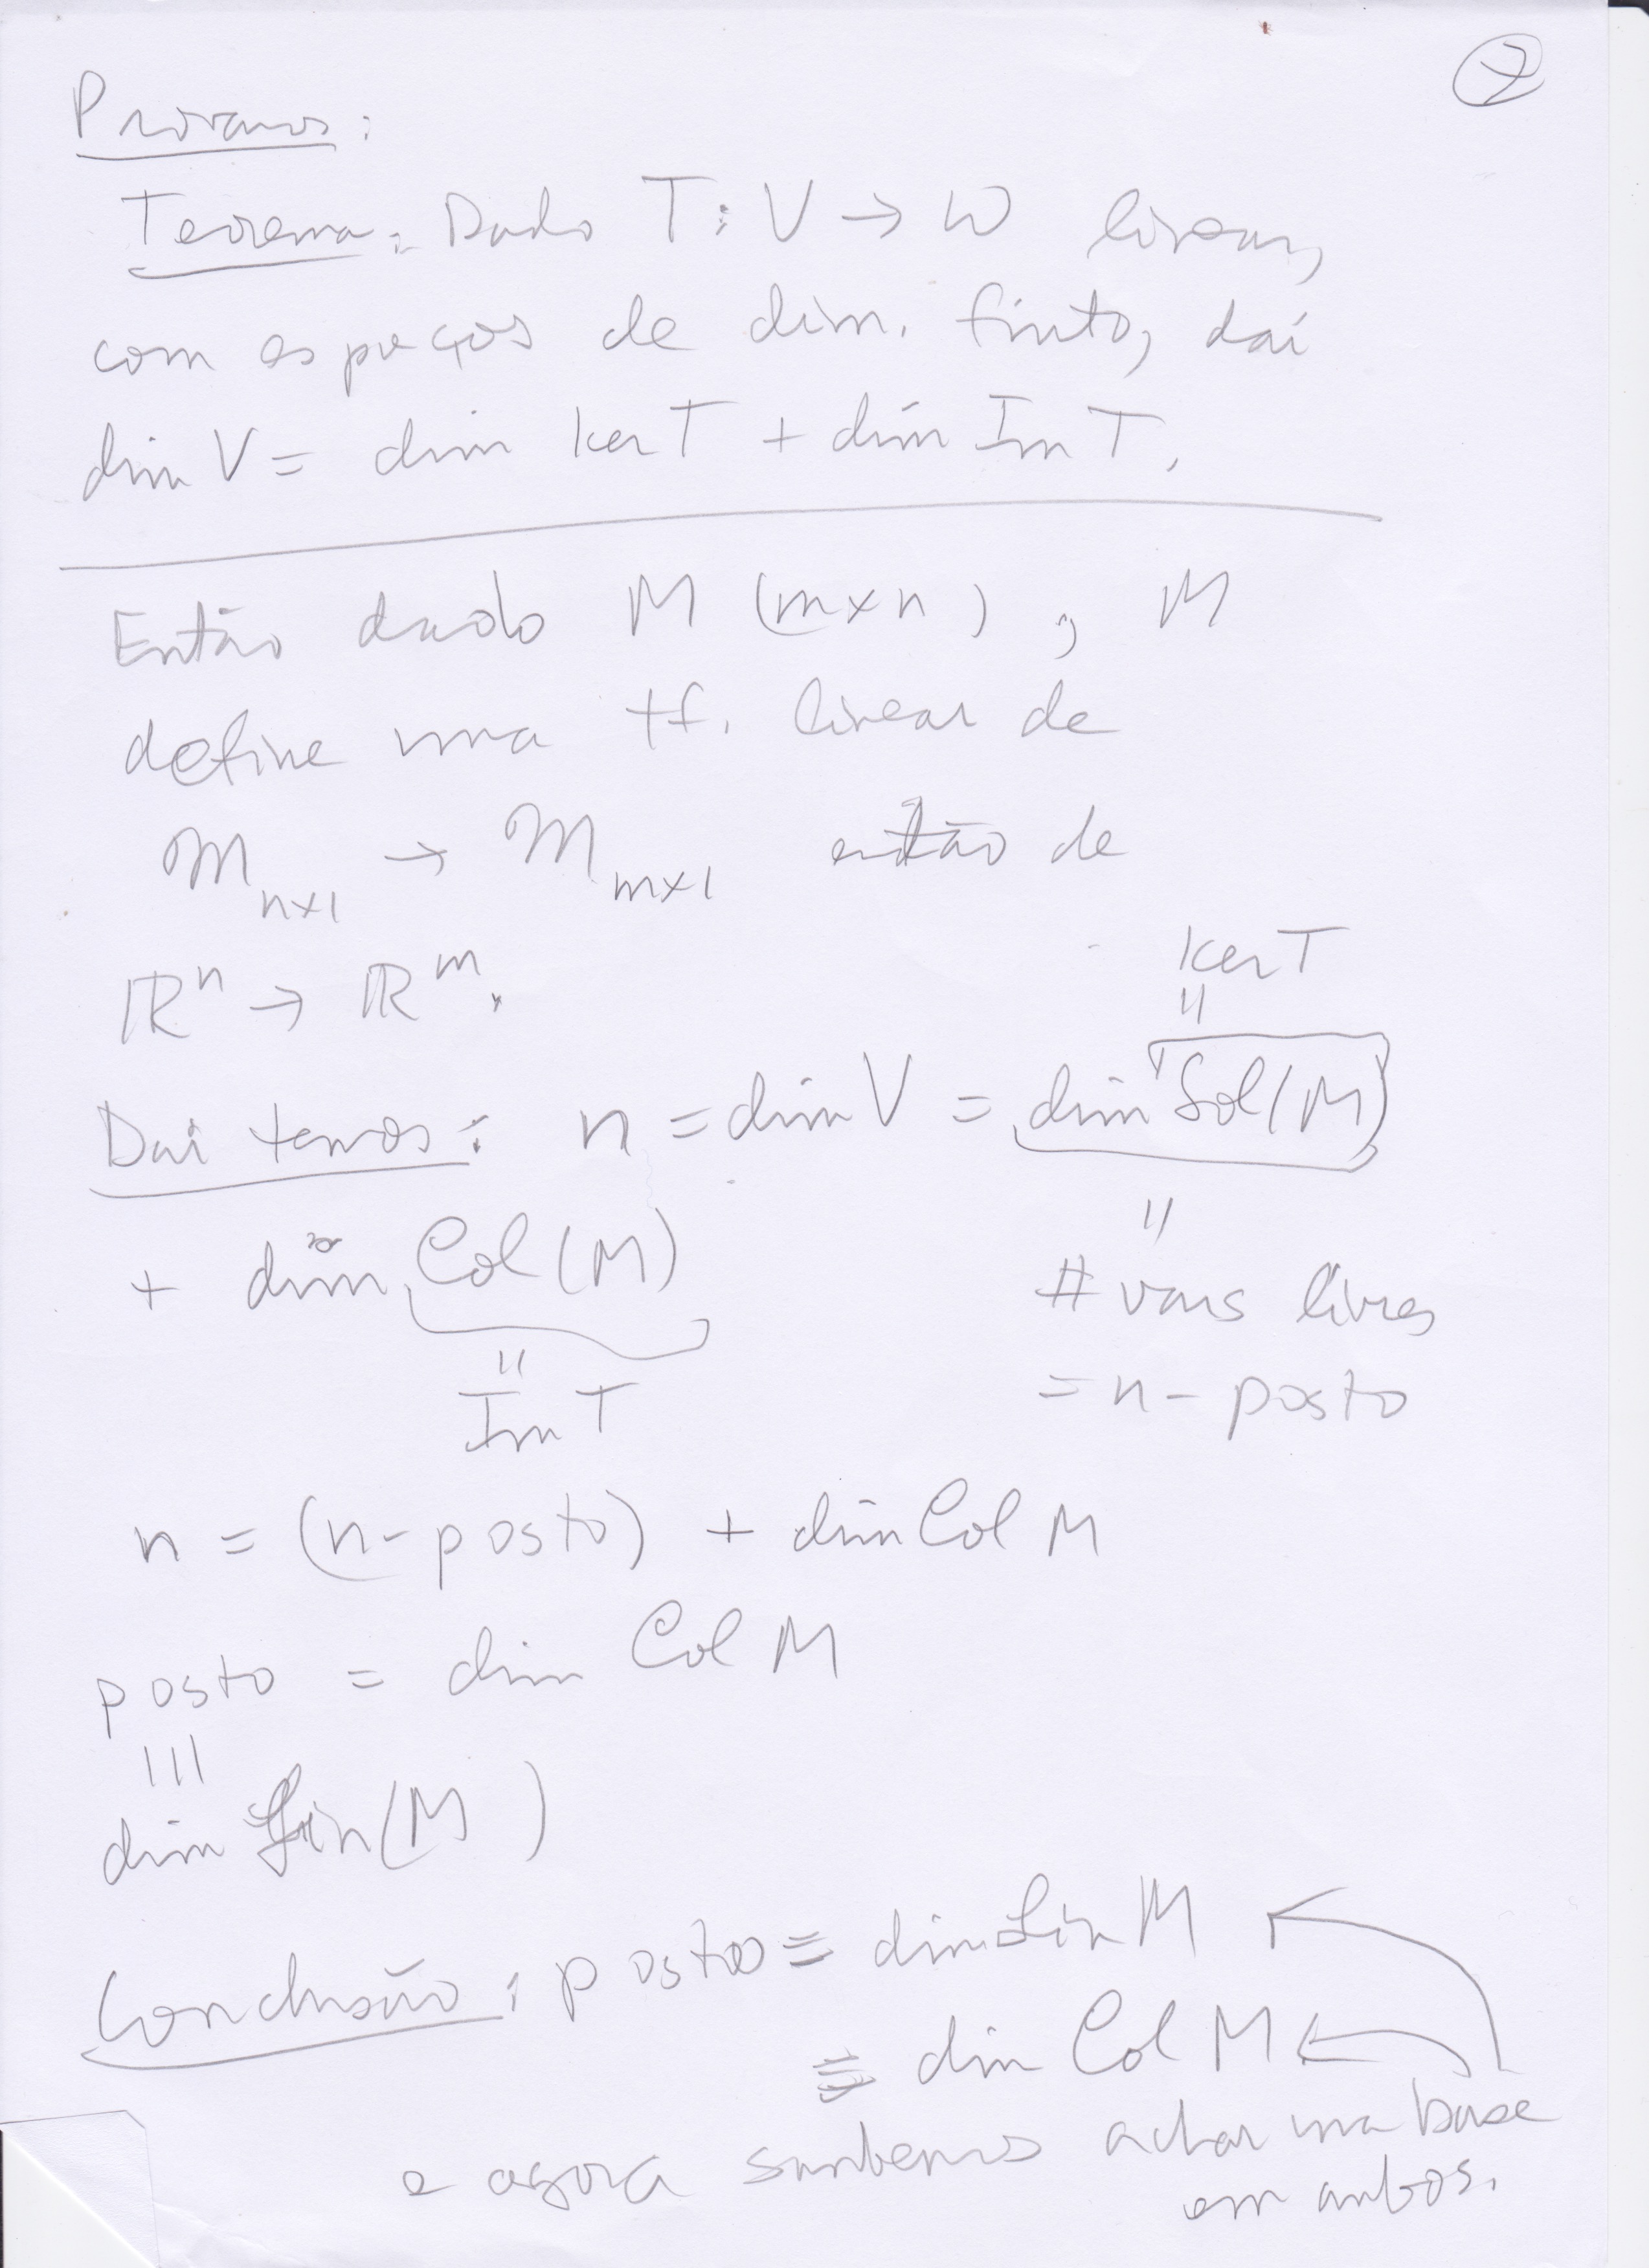 7
Provamos:
Teorema: Dado T: V → W linear,
com espaços de dim. finito, daí
dim V = dim ker T + dim Im T.
Então dado M (m×n), M
define uma tf. linear de
M n×1 → M m×1 então de
ℝⁿ → ℝᵐ.
ker T
||
Daí temos: n = dim V = dim Sol(M)
+ dim Col(M)
||
Im T
||
# vars livres
= n - posto
n = (n - posto) + dim Col M
posto = dim Col M
|||
dim Lin(M)
Conclusão: posto = dim Lin M
= dim Col M
e agora sabemos achar uma base
em ambos.